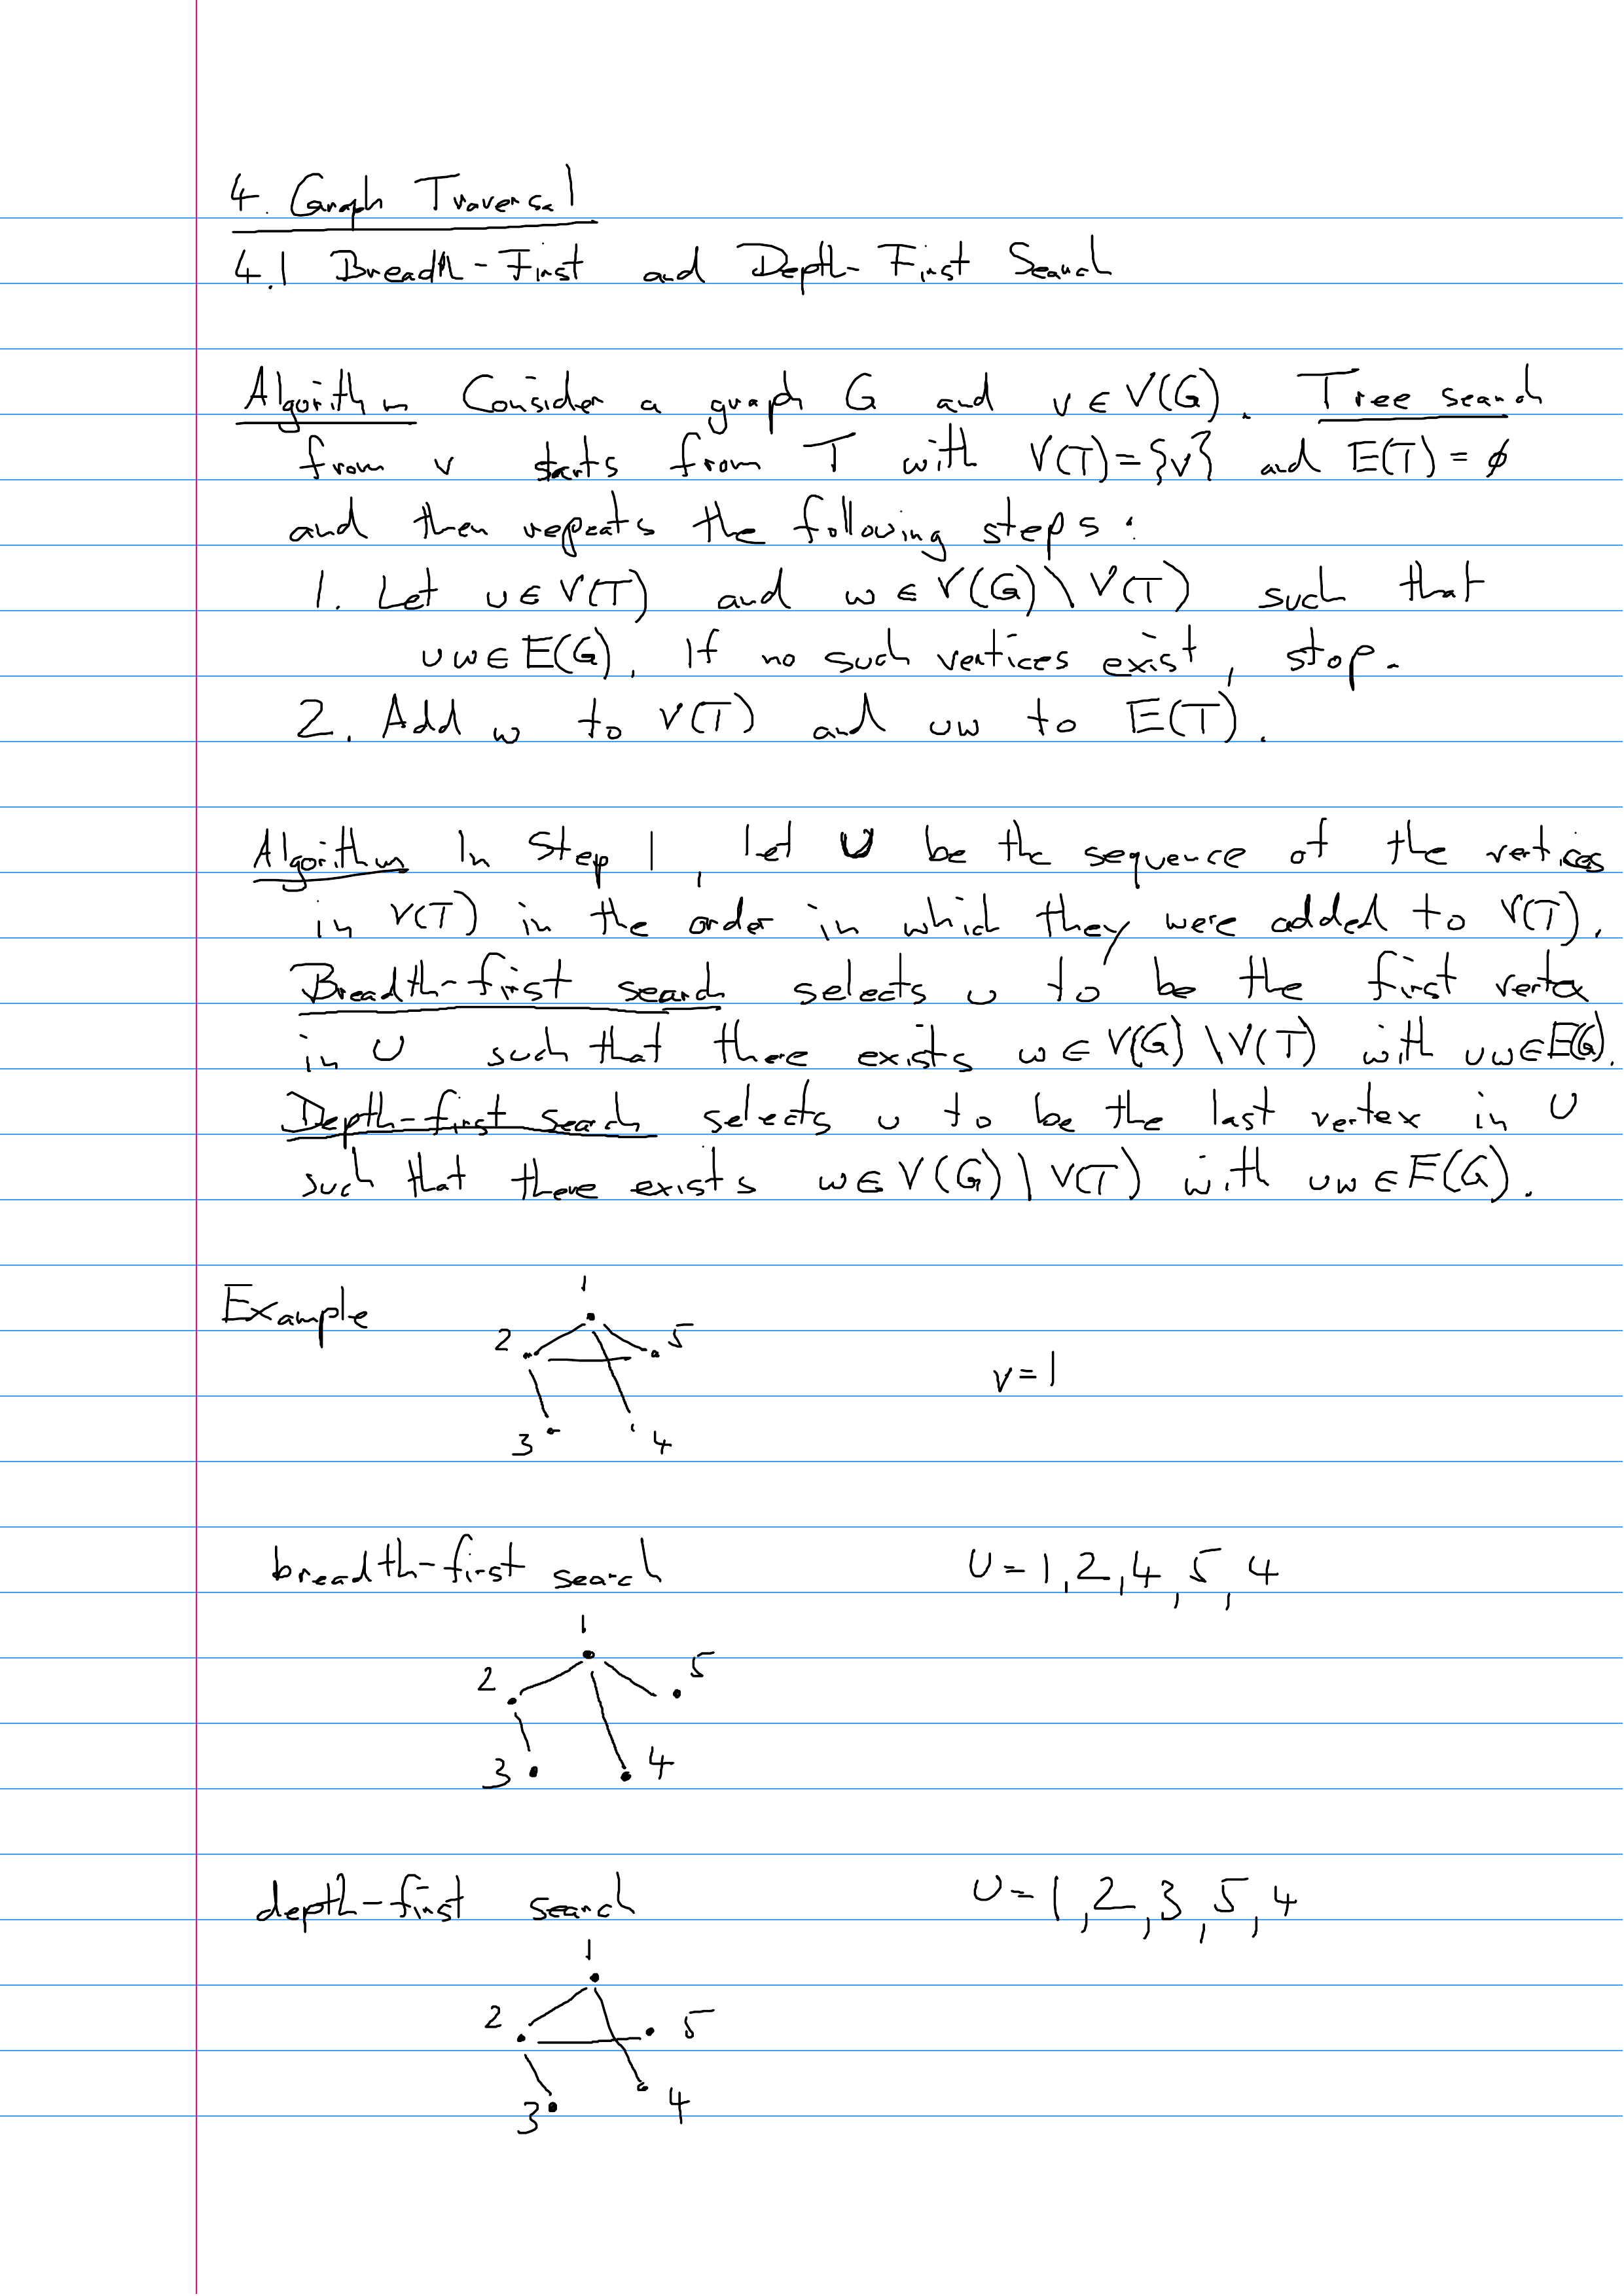 4. Graph Traversal
4.1 Breadth-First and Depth-First Search
Algorithm Consider a graph G and v ∈ V(G). Tree search
from v starts from T with V(T)={v} and E(T)=∅
and then repeats the following steps:
1. Let u ∈ V(T) and w ∈ V(G) \ V(T) such that
uw ∈ E(G). If no such vertices exist, stop.
2. Add w to V(T) and uw to E(T).
Algorithm In Step 1, let U be the sequence of the vertices
in V(T) in the order in which they were added to V(T).
Breadth-first search selects u to be the first vertex
in U such that there exists w ∈ V(G) \ V(T) with uw ∈ E(G).
Depth-first search selects u to be the last vertex in U
such that there exists w ∈ V(G) \ V(T) with uw ∈ E(G).
Example
1
2 5
v=1
3 4
breadth-first search U=1,2,4,5,4
1
2 5
3 4
depth-first search U=1,2,3,5,4
1
2 5
3 4